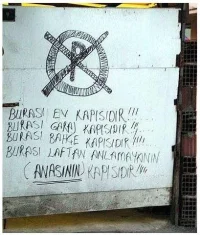 P
BURASI EV KAPISIDIR!!!
BURASI GARAJ KAPISIDIR!!...
BURASI BAHÇE KAPISIDIR!!!!
BURASI LAFTAN ANLAMAYANIN
(ANASININ) KAPISIDIR!!!!